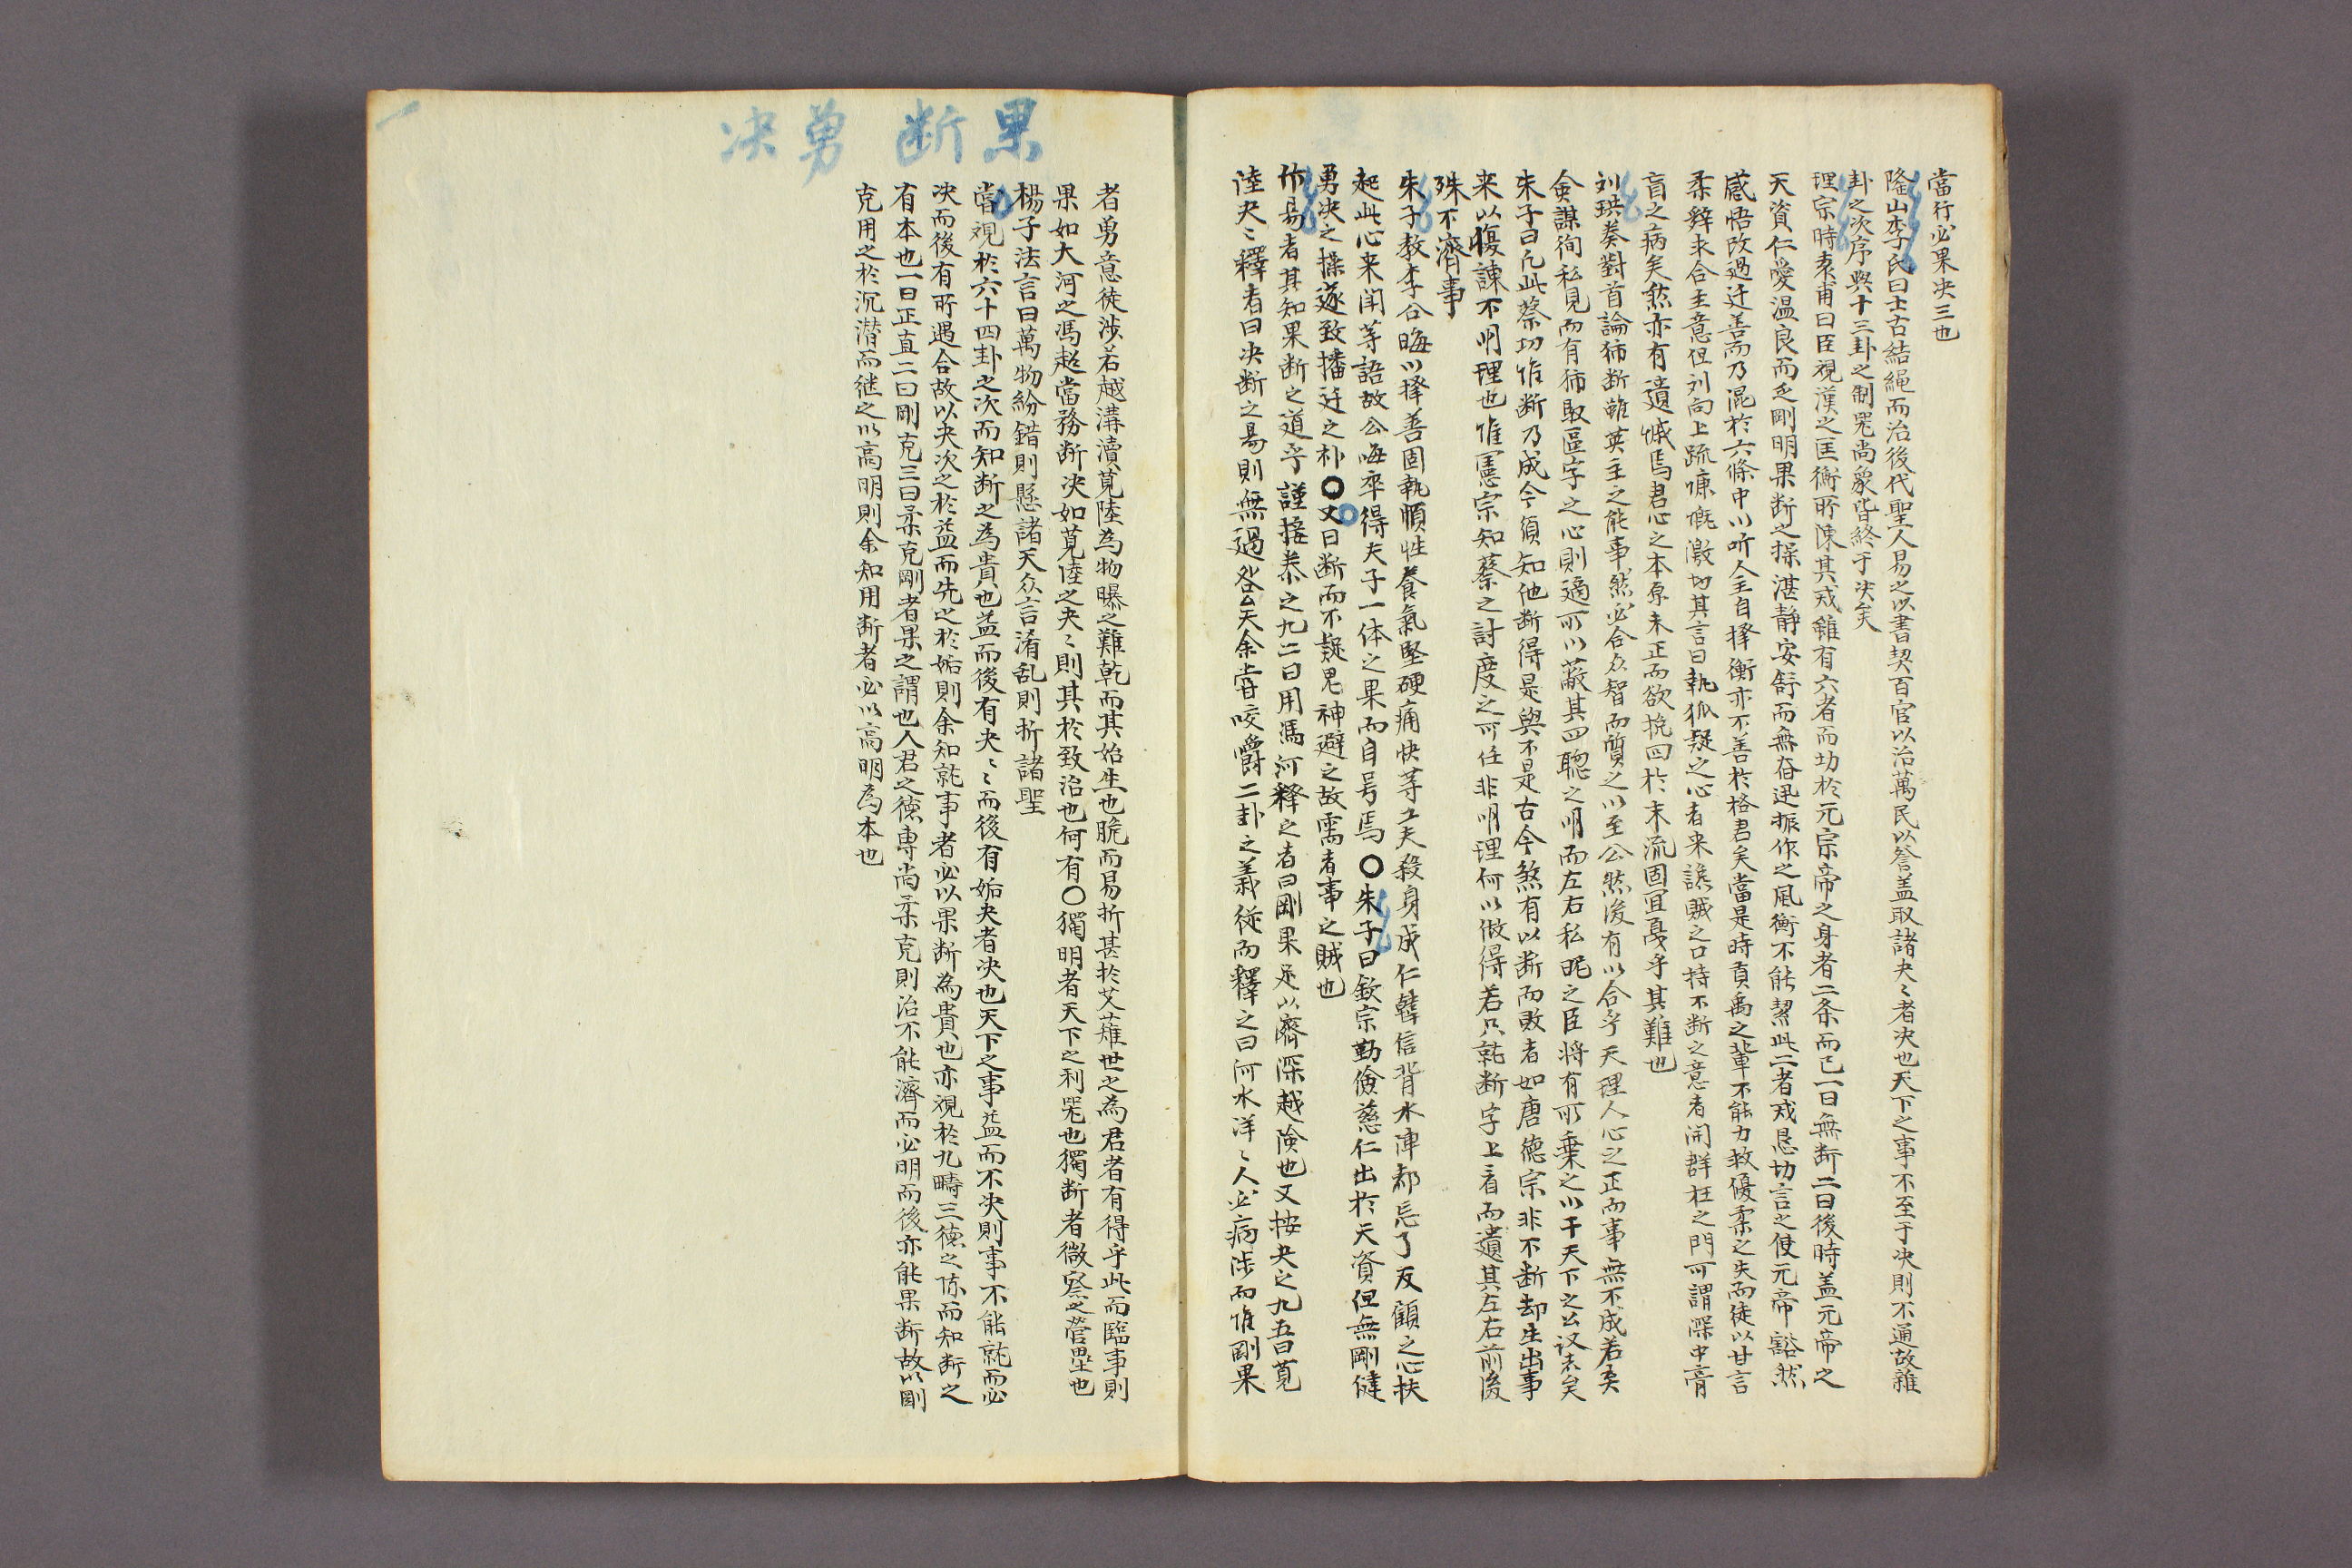 當行必果决三也
隆山李氏曰上古結縄而治後代聖人易之以書契百官以治萬民以詧盖取諸夬〻者决也天下之事不至于决則不通故雜
卦之次序與十三卦之制器尚象皆終于决矣
理宗時袁甫曰臣視漢之匡衡所陳其戒雖有六者而功於元宗帝之身者二条而已一曰無断二曰後時盖元帝之
天資仁愛温良而乏剛明果断之操湛静安舒而無奋迅振作之風衡不能絜此二者戒恳切言之使元帝豁然
感悟改過迁善而乃混於六條中以听人主自擇衡亦不善於格君矣當是時貢禹之輩不能力救優柔之失而徒以甘言
柔辞求合主意但刘向上疏慷慨激切其言曰執狐疑之心者来讒賊之口持不断之意者開群枉之門可謂深中膏
肓之病矣然亦有遺憾焉君心之本原未正而欲挽回於末流固宜戞乎其難也
刘珙奏對首論獨断雖英主之能事然必合众智而質之以至公然後有以合乎天理人心之正而事無不成若矣
僉謀徇私見而有独取區字之心則適所以蔽其四聦之明而左右私昵之臣将有所乗之以干天下之公议者矣
朱子曰凡此蔡功惟断乃成今須知他断得是與不是古今煞有以断而敗者如唐德宗非不断却生出事
来以愎諌不明理也惟憲宗知蔡之討度之可任非明理何以做得若只就断字上看而遺其左右前後
殊不濟事
朱子教李公晦以擇善固執順性養氣堅硬痛快等工夫殺身成仁韓信背水陣都忘了反顧之心扶
起此心来闘等語故公晦卒得夫子一体之果而自号焉〇朱子曰欽宗勤儉慈仁出於天資但無剛健
勇决之操遂致播迁之朴〇又曰断而不疑鬼神避之故需者事之賊也
作易者其知果断之道乎謹按泰之九二曰用馮河释之者曰剛果足以濟深越険也又按夬之九五曰莧
陸夬〻釋者曰决断之易則無過咎矣余嘗咬嚼二卦之義從而釋之曰河水洋〻人必病渉而惟剛果
果断 勇决
者勇意徒渉若越溝瀆莧陸為物曝之難乾而其始生也脆而易折甚於艾薙世之為君者有得乎此而臨事則
果如大河之馮越當務断决如莧陸之夬〻則其於致治也何有〇獨明者天下之利器也獨断者微密之營壘也
楊子法言曰萬物紛錯則懸諸天众言淆乱則折諸聖
當視於六十四卦之次而知断之為貴也益而後有夬〻而後有姤夬者决也天下之事益而不决則事不能就而必
决而後有所遇合故以夬次之於益而先之於姤則余知就事者必以果断為貴也亦視於九疇三德之陈而知断之
有本也一曰正直二曰剛克三曰柔克剛者果之謂也人君之德專尚柔克則治不能濟而必明而後亦能果断故以剛
克用之於沉潜而継之以高明則余知用断者必以高明為本也